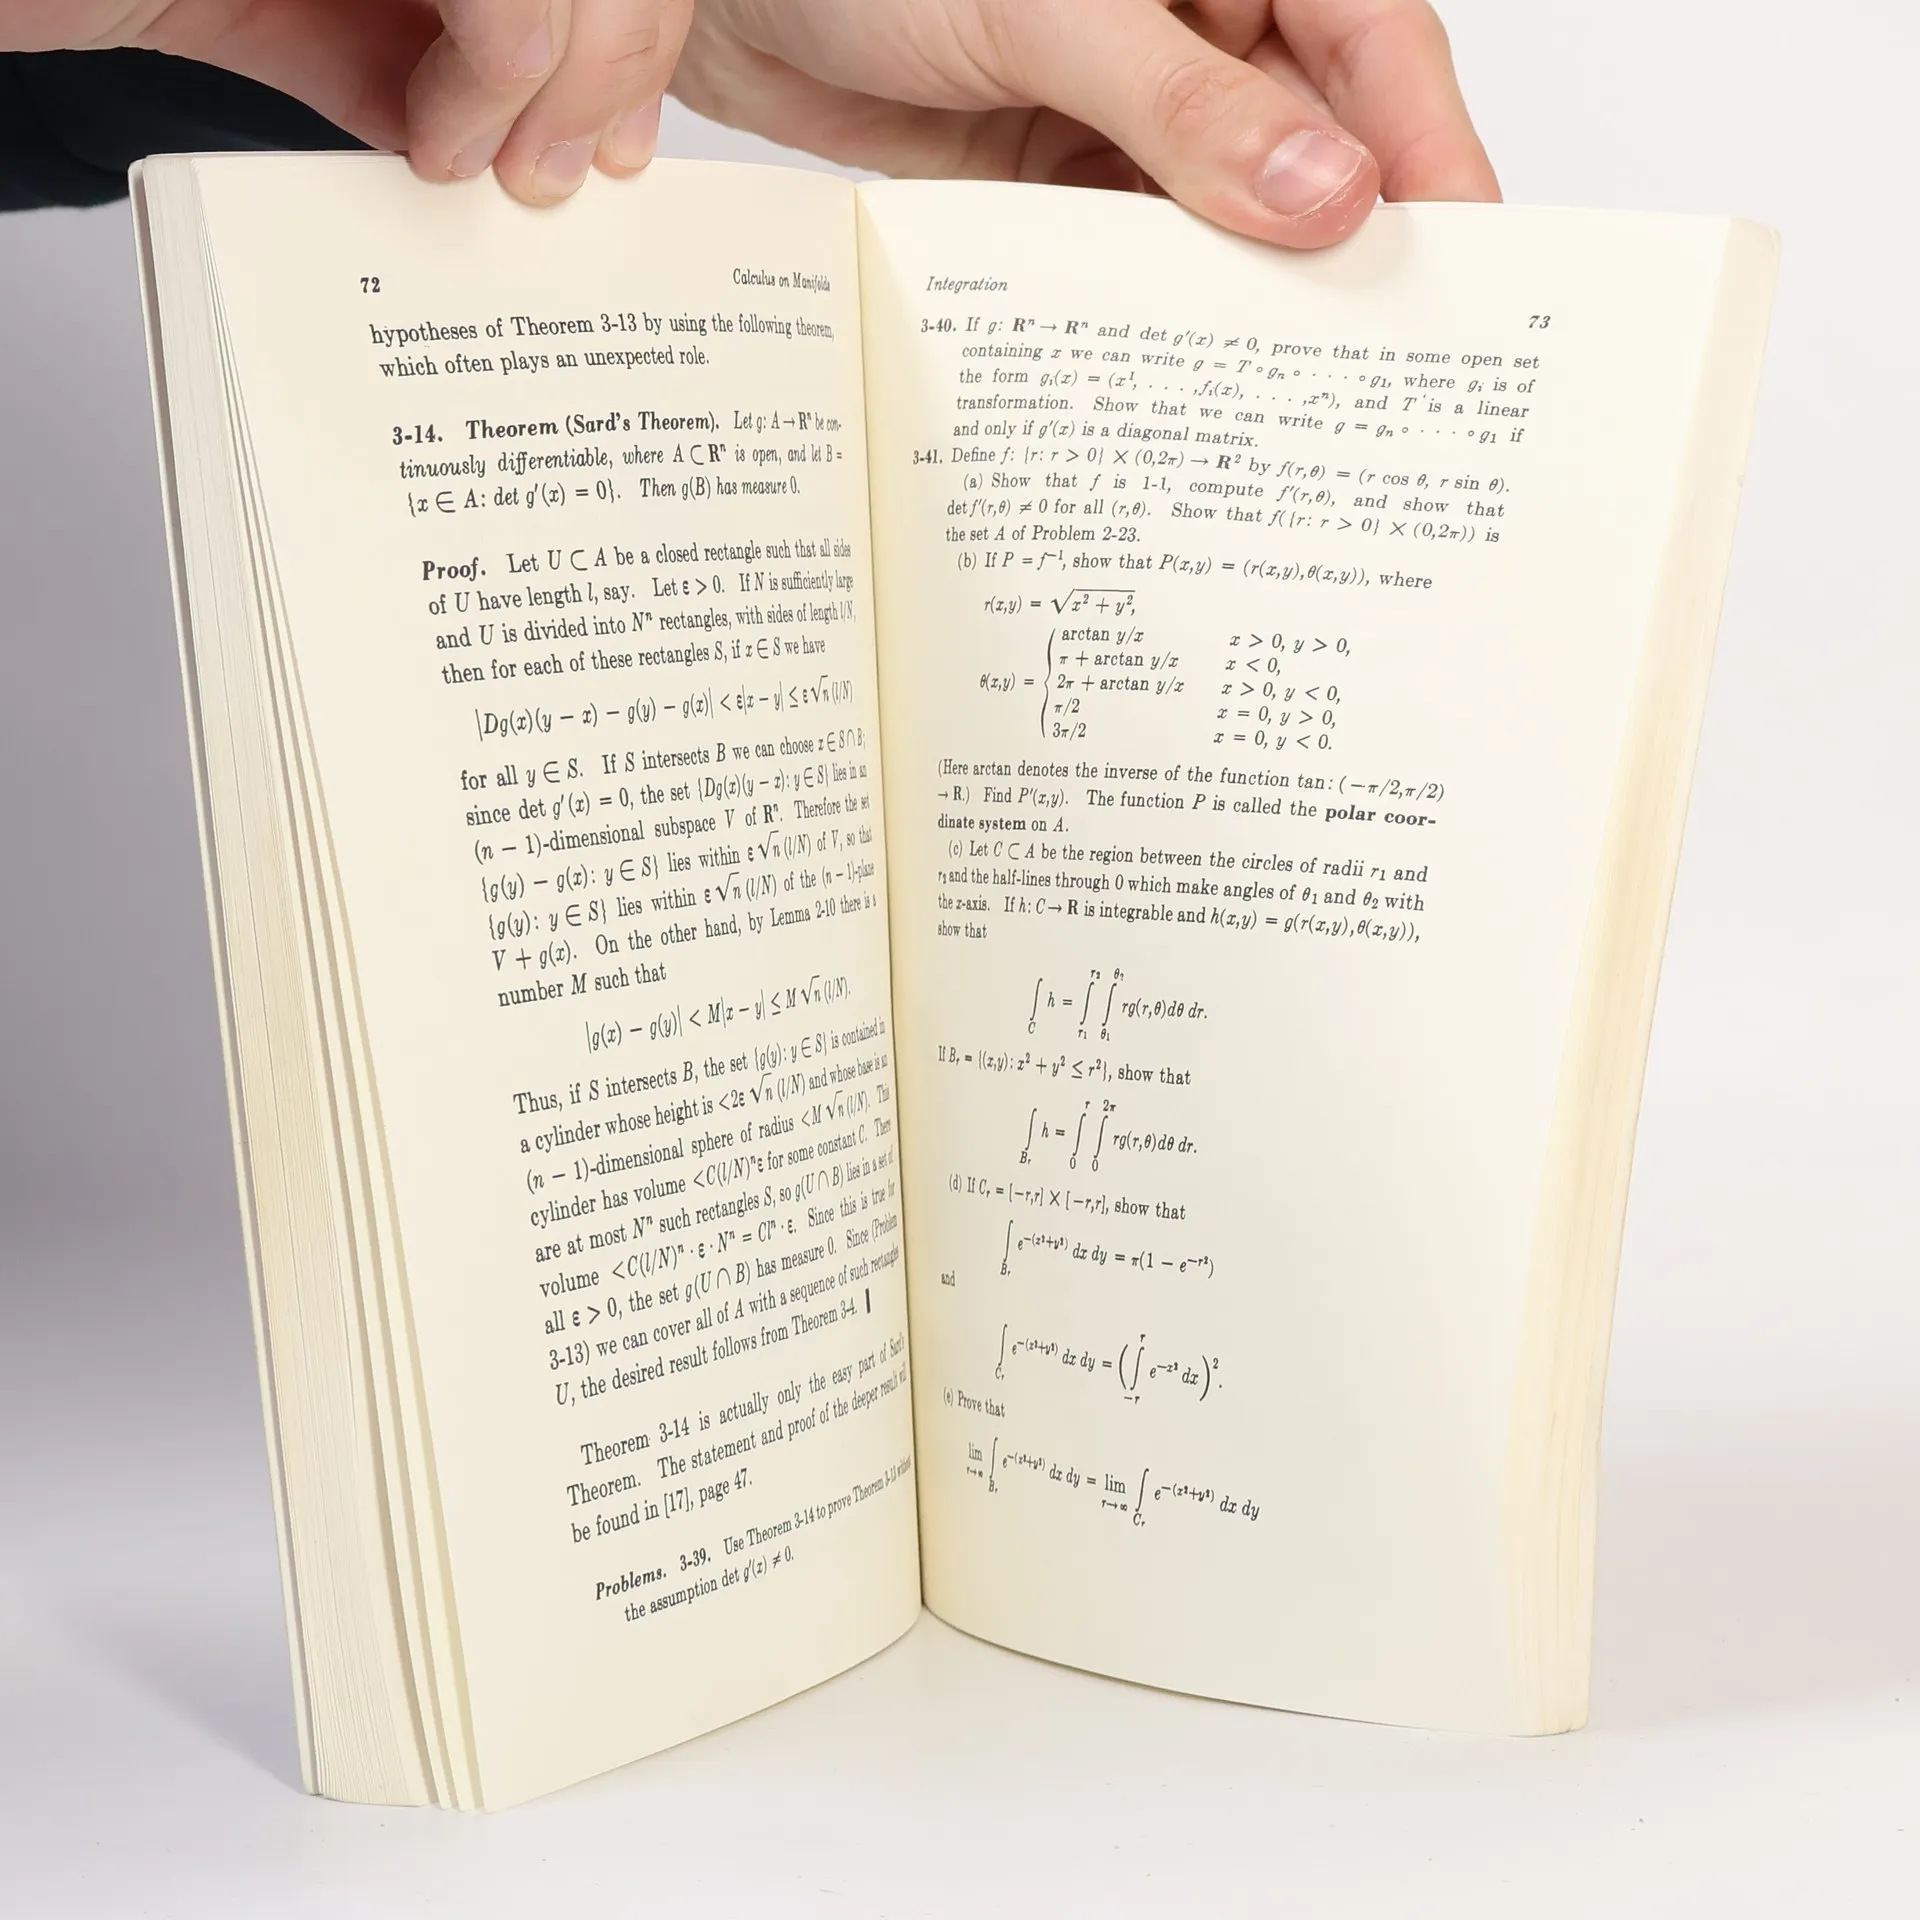 72
Calculus on Manifolds
hypotheses of Theorem 3-13 by using the following theorem,
which often plays an unexpected role.
3-14. Theorem (Sard's Theorem). Let g: A → Rⁿ be con-
tinuously differentiable, where A ⊂ Rⁿ is open, and let B =
{x ∈ A: det g′(x) = 0}. Then g(B) has measure 0.
Proof. Let U ⊂ A be a closed rectangle such that all sides
of U have length l, say. Let ε > 0. If N is sufficiently large
and U is divided into Nⁿ rectangles, with sides of length l/N,
then for each of these rectangles S, if x ∈ S we have
|Dg(x)(y − x) − g(y) − g(x)| < ε|x − y| ≤ ε√n (l/N)
for all y ∈ S. If S intersects B we can choose x ∈ S ∩ B;
since det g′(x) = 0, the set {Dg(x)(y − x): y ∈ S} lies in an
(n − 1)-dimensional subspace V of Rⁿ. Therefore the set
{g(y) − g(x): y ∈ S} lies within ε√n (l/N) of V, so that
{g(y): y ∈ S} lies within ε√n (l/N) of the (n − 1)-plane
V + g(x). On the other hand, by Lemma 2-10 there is a
number M such that
|g(x) − g(y)| < M|x − y| ≤ M√n (l/N).
Thus, if S intersects B, the set {g(y): y ∈ S} is contained in
a cylinder whose height is <2ε√n (l/N) and whose base is an
(n − 1)-dimensional sphere of radius <M√n (l/N). This
cylinder has volume <C(l/N)ⁿε for some constant C. There
are at most Nⁿ such rectangles S, so g(U ∩ B) lies in a set of
volume <C(l/N)ⁿ · ε · Nⁿ = Clⁿ · ε. Since this is true for
all ε > 0, the set g(U ∩ B) has measure 0. Since (Problem
3-13) we can cover all of A with a sequence of such rectangles
U, the desired result follows from Theorem 3-4. ▌
Theorem 3-14 is actually only the easy part of Sard's
Theorem. The statement and proof of the deeper result will
be found in [17], page 47.
Problems. 3-39. Use Theorem 3-14 to prove Theorem 3-13 without
the assumption det g′(x) ≠ 0.
Integration
73
3-40. If g: Rⁿ → Rⁿ and det g′(x) ≠ 0, prove that in some open set
containing x we can write g = T ∘ gₙ ∘ · · · ∘ g₁, where gᵢ is of
the form gᵢ(x) = (x¹, . . . ,fᵢ(x), . . . ,xⁿ), and T is a linear
transformation. Show that we can write g = gₙ ∘ · · · ∘ g₁ if
and only if g′(x) is a diagonal matrix.
3-41. Define f: {r: r > 0} × (0,2π) → R² by f(r,θ) = (r cos θ, r sin θ).
(a) Show that f is 1-1, compute f′(r,θ), and show that
det f′(r,θ) ≠ 0 for all (r,θ). Show that f({r: r > 0} × (0,2π)) is
the set A of Problem 2-23.
(b) If P = f⁻¹, show that P(x,y) = (r(x,y),θ(x,y)), where
r(x,y) = √(x² + y²),
θ(x,y) = { arctan y/x x > 0, y > 0,
π + arctan y/x x < 0,
2π + arctan y/x x > 0, y < 0,
π/2 x = 0, y > 0,
3π/2 x = 0, y < 0.
(Here arctan denotes the inverse of the function tan: (−π/2,π/2)
→ R.) Find P′(x,y). The function P is called the polar coor-
dinate system on A.
(c) Let C ⊂ A be the region between the circles of radii r₁ and
r₂ and the half-lines through 0 which make angles of θ₁ and θ₂ with
the x-axis. If h: C → R is integrable and h(x,y) = g(r(x,y),θ(x,y)),
show that
∫_C h = ∫_{r₁}^{r₂} ∫_{θ₁}^{θ₂} rg(r,θ)dθ dr.
If Bᵣ = {(x,y): x² + y² ≤ r²}, show that
∫_{Bᵣ} h = ∫_0^r ∫_0^{2π} rg(r,θ)dθ dr.
(d) If Cᵣ = [−r,r] × [−r,r], show that
∫_{Bᵣ} e^{−(x²+y²)} dx dy = π(1 − e^{−r²})
and
∫_{Cᵣ} e^{−(x²+y²)} dx dy = (∫_{−r}^r e^{−x²} dx)².
(e) Prove that
lim_{r→∞} ∫_{Bᵣ} e^{−(x²+y²)} dx dy = lim_{r→∞} ∫_{Cᵣ} e^{−(x²+y²)} dx dy